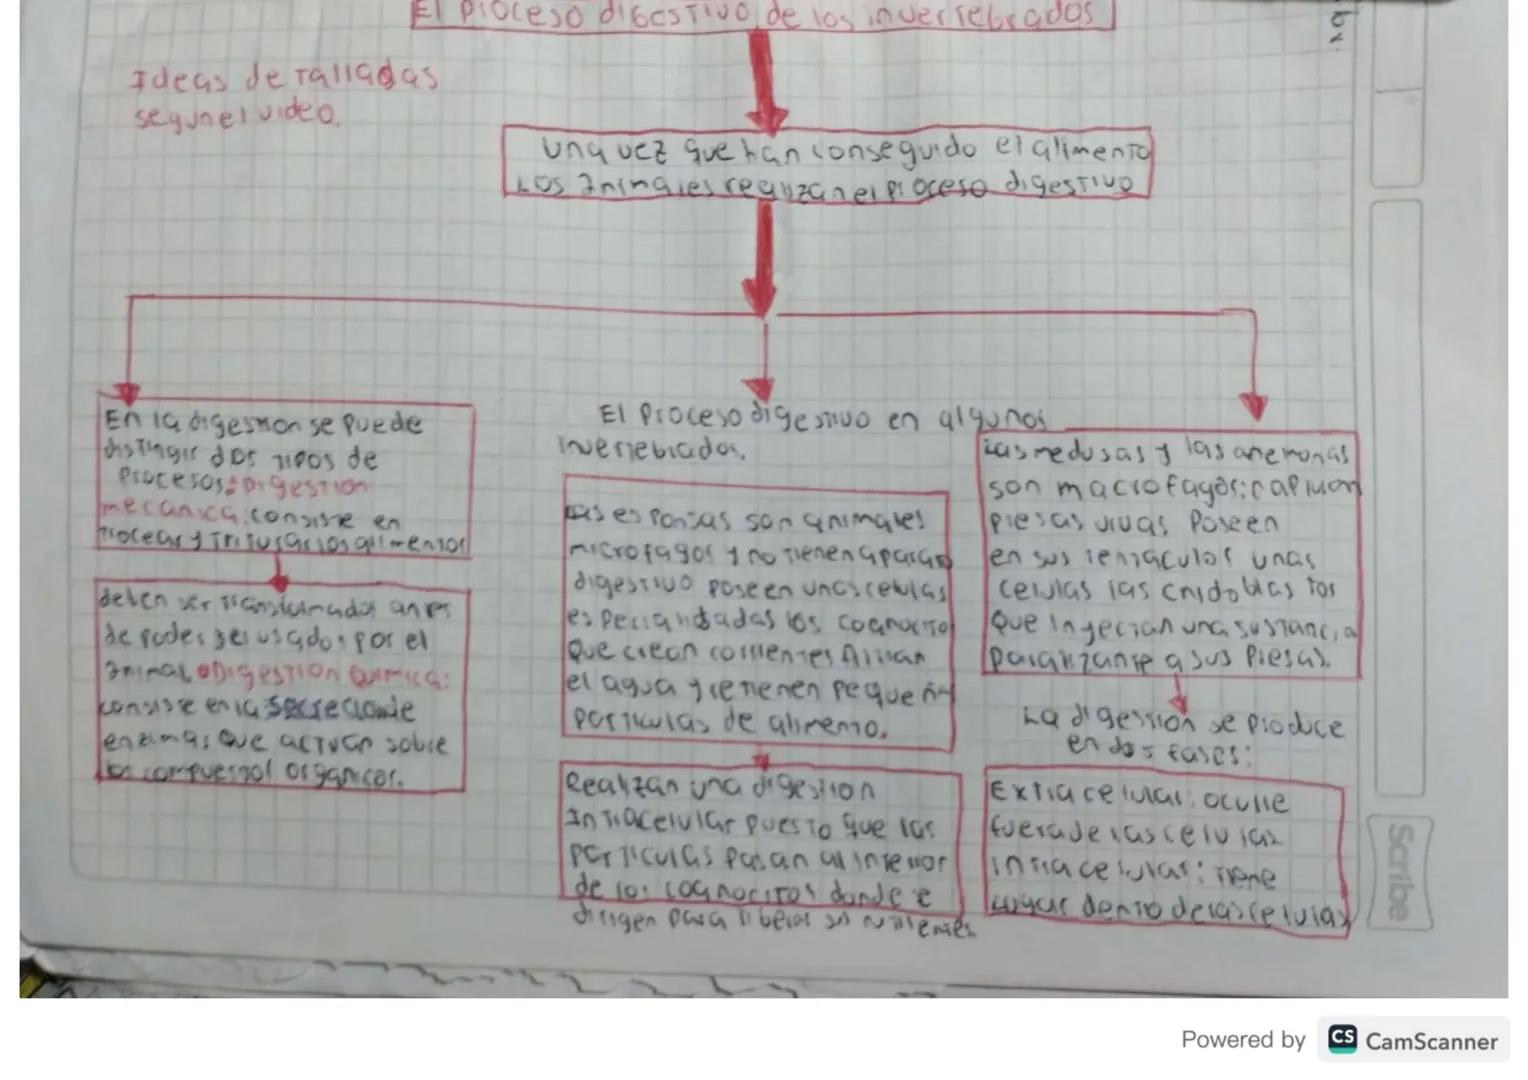 El proceso digestivo de los invertebrados
Ideas detalladas
segun el video.
una vez que han conseguido el alimento
Los animales realizan el proceso digestivo
En la digestion se puede
distingir dos tipos de
procesos: Digestion
mecanica: consiste en
trocear y triturar los alimentos
deben ser transformados antes
de poder ser usados por el
animal Digestion Quimica:
consiste en la secrecionde
enzimas que actuan sobre
los compuestos organicos.
El proceso digestivo en algunos
invertebrados.
Las esponjas son animales
microfagos y no tienen aparato
digestivo poseen unas celulas
especializadas los
que crean corrientes filtran
el agua y retienen pequeñas
particulas de alimento.
Realizan una digestion
Intracelular puesto que las
particulas pasan al interior
de los donde
dirigen para liberar sus nutrientes
Las medusas y las anemonas
son macrofagos: capturan
presas vivas. Poseen
en sus tentaculos unas
celulas las
que inyectan una sustancia
paralizante a sus presas.
La digestion se produce
en dos fases:
Extracelular: ocurre
fuera de las celulas
intracelular: tiene
lugar dentro de las celulas
Scribe
Powered by CS CamScanner